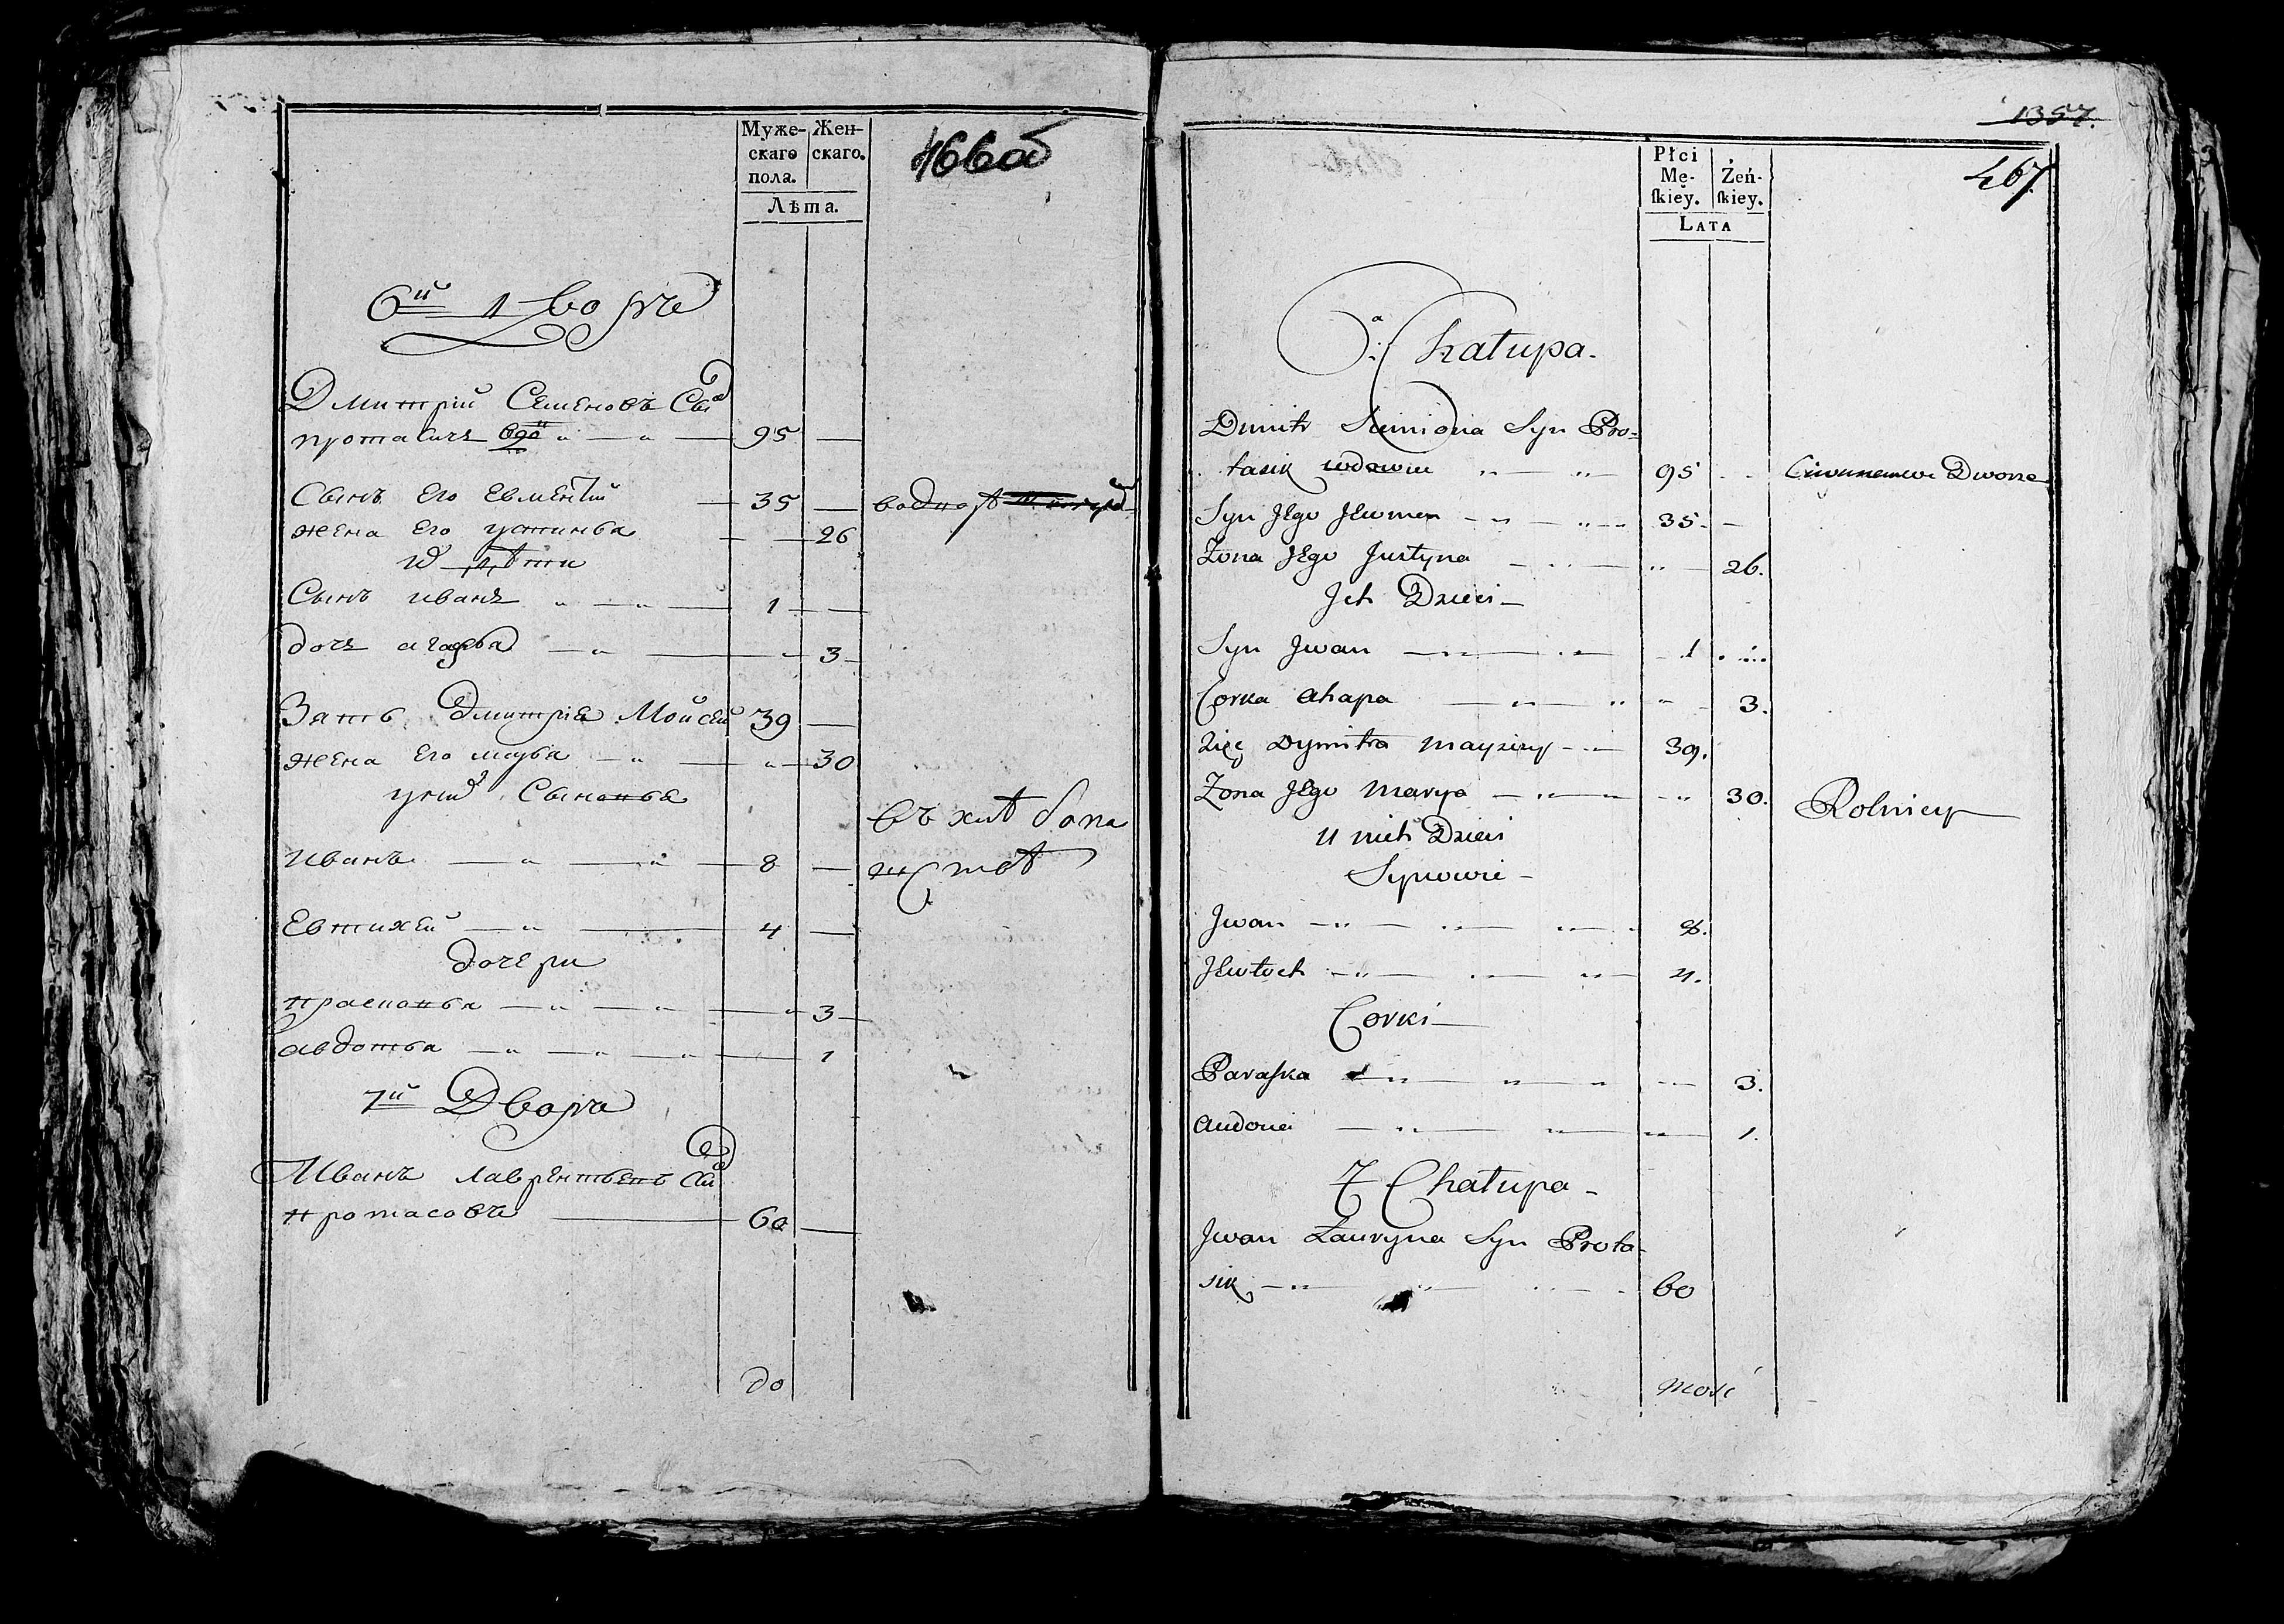 Муже-
скаго
пола.
Жен-
скаго.
Лѣта.
466об
6й Дворъ
Дмитрій Семеновъ Сынъ
протасикъ вдо 95
Сынъ Его Евменій 35
жена Его устинья 26
их дѣти
Сынъ иванъ 1
дочь агафья 3
Зять Дмитрия Мойсей 39
жена Его марья 30
у них Сыновья
въ хлѣбопа
шествѣ
иванъ 8
Евтихей 4
дочери
прасковья 3
авдотья 1
7й Дворъ
Иванъ лаврентьевъ Сынъ
протасовъ 60
до
1357.
467
Płci
Mę-
skiey.
Żeń-
skiey.
LATA
6a Chałupa.
Dmitr Simiona Syn Pro-
tasik wdowiec 95
Syn Jego Jewmen 35
Żona Jego Justyna 26.
Jch Dzieci
Syn Jwan 1
Corka Ahapa 3.
Zięć Dymitra Mayzizy 39.
Żona Jego Marya 30.
Rolnicy
U nich Dzieci
Synowie
Jwan 8.
Jewtuch 4.
Corki
Paraska 3.
Audocia 1.
7 Chałupa
Jwan Ławryna Syn Prota-
sik 60